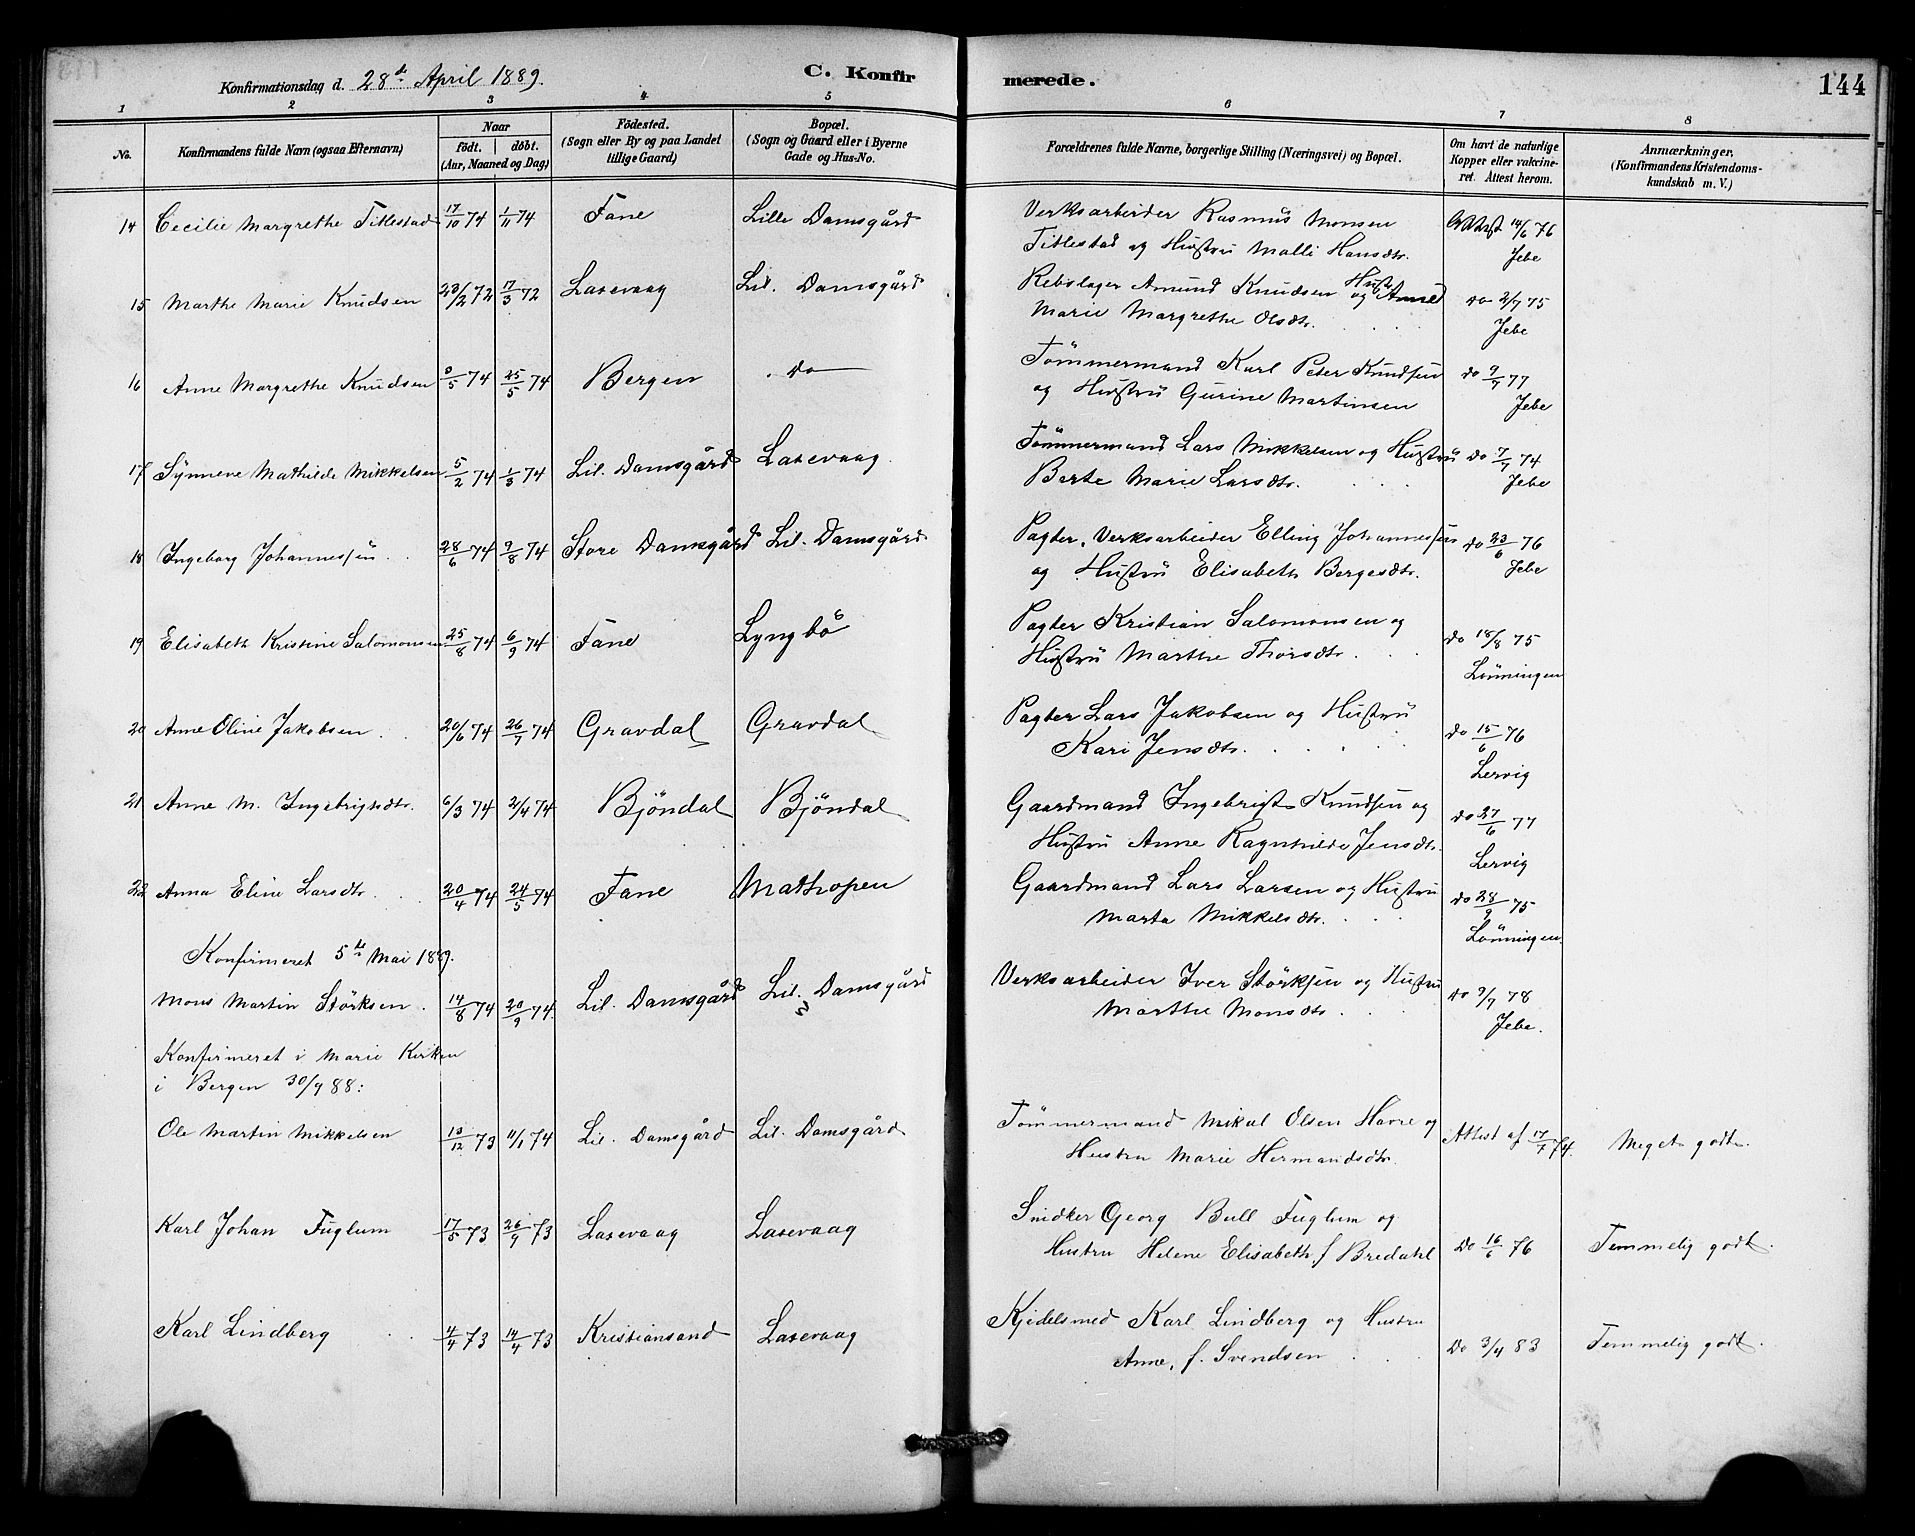 Konfirmationsdag d. 28de April 1889.
C. Konfirmerede.
144
1 2 3 4 5 6 7 8
No.
Konfirmandens fulde Navn (ogsaa Efternavn)
Naar
födt. döbt.
(Aar, Maaned og Dag)
Födested.
(Sogn eller By og paa Landet
tillige Gaard)
Bopæl.
(Sogn og Gaard eller i Byerne
Gade og Hus-No.
Forældrenes fulde Navne, borgerlige Stilling (Næringsvei) og Bopæl.
Om havt de naturlige
Kopper eller vakcine-
ret. Attest herom.
Anmærkninger.
(Konfirmandens Kristendoms-
kundskab m. V.)
14 Cecilie Margrethe Titlestad 17/10 74 1/11 74 Fane Lille Damsgård Verksarbeider Rasmus Monsen Attest 14/6 76
Titlestad og Hustru Malli Hansdtr. Jebe
15 Marthe Marie Knudsen 23/2 72 17/3 72 Laxevaag Lil. Damsgård Rebslager Amund Knudsen og Hust. Anne do 2/7 75
Marie Margrethe Olsdtr. Jebe
16 Anne Margrethe Knudsen /5 74 25/5 74 Bergen do Tömmermand Karl Peter Knudsen do 9/7 77
og Hustru Gurine Martinsen Jebe
17 Synneve Mathilde Mikkelsen 5/2 74 1/3 74 Lil. Damsgård Laxevaag Tömmermand Lars Mikkelsen og Hustru do 7/7 74
Berte Marie Larsdtr. Jebe
18 Ingeborg Johannessen 28/6 74 9/8 74 Store Damsgård Lil. Damsgård Pagter, Verksarbeider Elling Johannessen do 23/6 76
og Hustru Elisabeth Bergesdtr. Jebe
19 Elisabeth Kristine Salomonsen 25/8 74 6/9 74 Fane Lyngbö Pagter Kristian Salomonsen og do 18/8 75
Hustru Marthe Thorsdtr. Lönningen
20 Anne Oline Jakobsen 20/6 74 26/7 74 Gravdal Gravdal Pagter Lars Jakobsen og Hustru do 15/6 76
Kari Jensdtr. Lervig
21 Anne M. Ingebrigtsdtr. 6/3 74 2/4 74 Bjöndal Bjöndal Gaardmand Ingebrigt Knudsen og do 27/6 77
Hustru Anne Ragnhilde Jensdtr. Lervig
22 Anna Eline Larsdtr. 20/4 74 24/5 74 Fane Mathopen Gaardmand Lars Larsen og Hustru do 28/9 75
Marta Mikkelsdtr. Lönningen.
Konfirmeret 5te Mai 1889.
Mons Martin Störksen 14/8 74 20/9 74. Lil. Damsgård Lil. Damsgård Verksarbeider Iver Störksen og Hustru do 9/7 78
Marthe Monsdtr. Jebe.
Konfirmeret i Marie Kirken
i Bergen 30/9 88:
Ole Martin Mikkelsen 13/12 73 11/1 74 Lil. Damsgård Lil. Damsgård Tömmermand Mikal Olsen Havre og Attest af 17/7 74. Meget godt.
Hustru Marie Hermandsdtr.
Karl Johan Fuglum 17/5 73 26/9 73 Laxevaag Laxevaag Snidker Georg Bull Fuglum og
Hustru Helene Elisabeth f Bredahl Do 16/6 76 Temmelig godt.
Karl Lindberg 4/4 73 14/4 73 Kristiansand Laxevaag Kjedelsmed Karl Lindberg og Hustru Do 3/4 83 Temmelig godt.
Anne, f. Svendsen